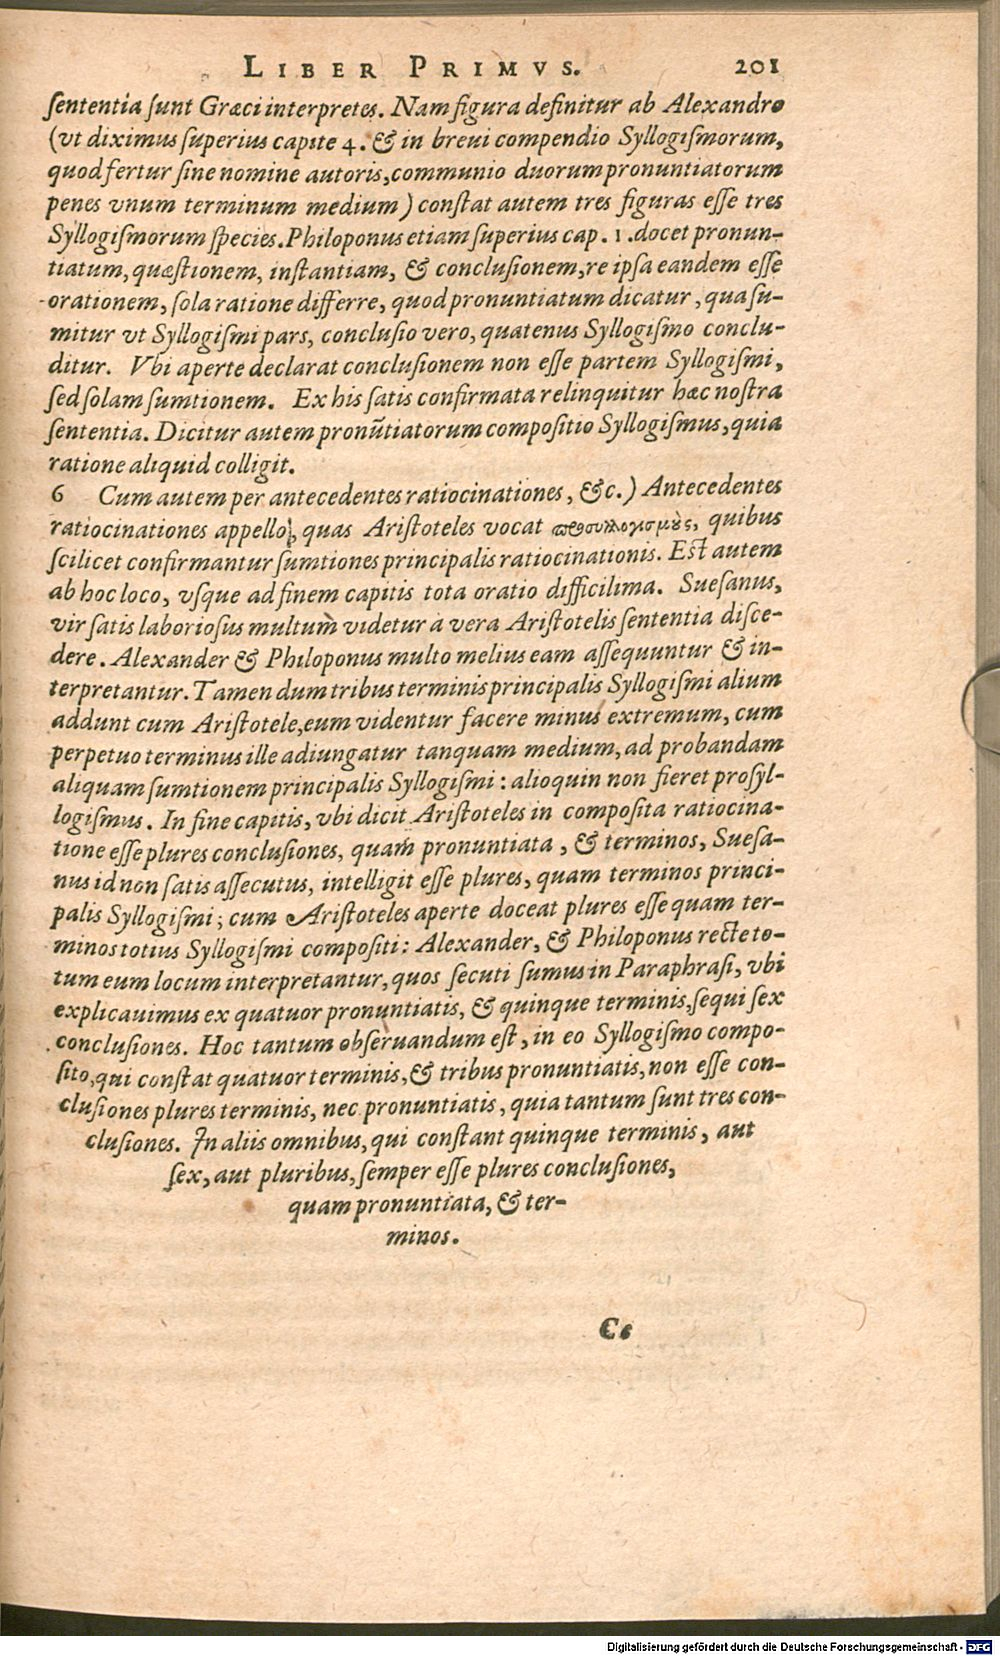 LIBER PRIMVS. 201
ſententia ſunt Græci interpretes. Nam figura definitur ab Alexandro
(vt diximus ſuperius capite 4. & in breui compendio Syllogiſmorum,
quod fertur ſine nomine autoris, communio duorum pronuntiatorum
penes vnum terminum medium) conſtat autem tres figuras eſſe tres
Syllogiſmorum ſpecies. Philoponus etiam ſuperius cap. 1. docet pronun-
tiatum, quæſtionem, inſtantiam, & concluſionem, re ipſa eandem eſſe
orationem, ſola ratione differre, quod pronuntiatum dicatur, qua ſu-
mitur vt Syllogiſmi pars, concluſio vero, quatenus Syllogiſmo conclu-
ditur. Vbi aperte declarat concluſionem non eſſe partem Syllogiſmi,
ſed ſolam ſumtionem. Ex his ſatis confirmata relinquitur hæc noſtra
ſententia. Dicitur autem pronūtiatorum compoſitio Syllogiſmus, quia
ratione aliquid colligit.
6 Cum autem per antecedentes ratiocinationes, &c.) Antecedentes
ratiocinationes appello, quas Ariſtoteles vocat προσυλλογισμοὺς, quibus
ſcilicet confirmantur ſumtiones principalis ratiocinationis. Eſt autem
ab hoc loco, vſque ad finem capitis tota oratio difficilima. Sueſanus,
vir ſatis laborioſus multum videtur à vera Ariſtotelis ſententia diſce-
dere. Alexander & Philoponus multo melius eam aſſequuntur & in-
terpretantur. Tamen dum tribus terminis principalis Syllogiſmi alium
addunt cum Ariſtotele, eum videntur facere minus extremum, cum
perpetuo terminus ille adiungatur tanquam medium, ad probandam
aliquam ſumtionem principalis Syllogiſmi: alioquin non fieret proſyl-
logiſmus. In fine capitis, vbi dicit Ariſtoteles in compoſita ratiocina-
tione eſſe plures concluſiones, quam pronuntiata, & terminos, Sueſa-
nus id non ſatis aſſecutus, intelligit eſſe plures, quam terminos princi-
palis Syllogiſmi; cum Ariſtoteles aperte doceat plures eſſe quam ter-
minos totius Syllogiſmi compoſiti: Alexander, & Philoponus recte to-
tum eum locum interpretantur, quos ſecuti ſumus in Paraphraſi, vbi
explicauimus ex quatuor pronuntiatis, & quinque terminis, ſequi ſex
concluſiones. Hoc tantum obſeruandum eſt, in eo Syllogiſmo compo-
ſito, qui conſtat quatuor terminis, & tribus pronuntiatis, non eſſe con-
cluſiones plures terminis, nec pronuntiatis, quia tantum ſunt tres con-
cluſiones. In aliis omnibus, qui conſtant quinque terminis, aut
ſex, aut pluribus, ſemper eſſe plures concluſiones,
quam pronuntiata, & ter-
minos.
Cc
Digitalisierung gefördert durch die Deutsche Forschungsgemeinschaft - DFG